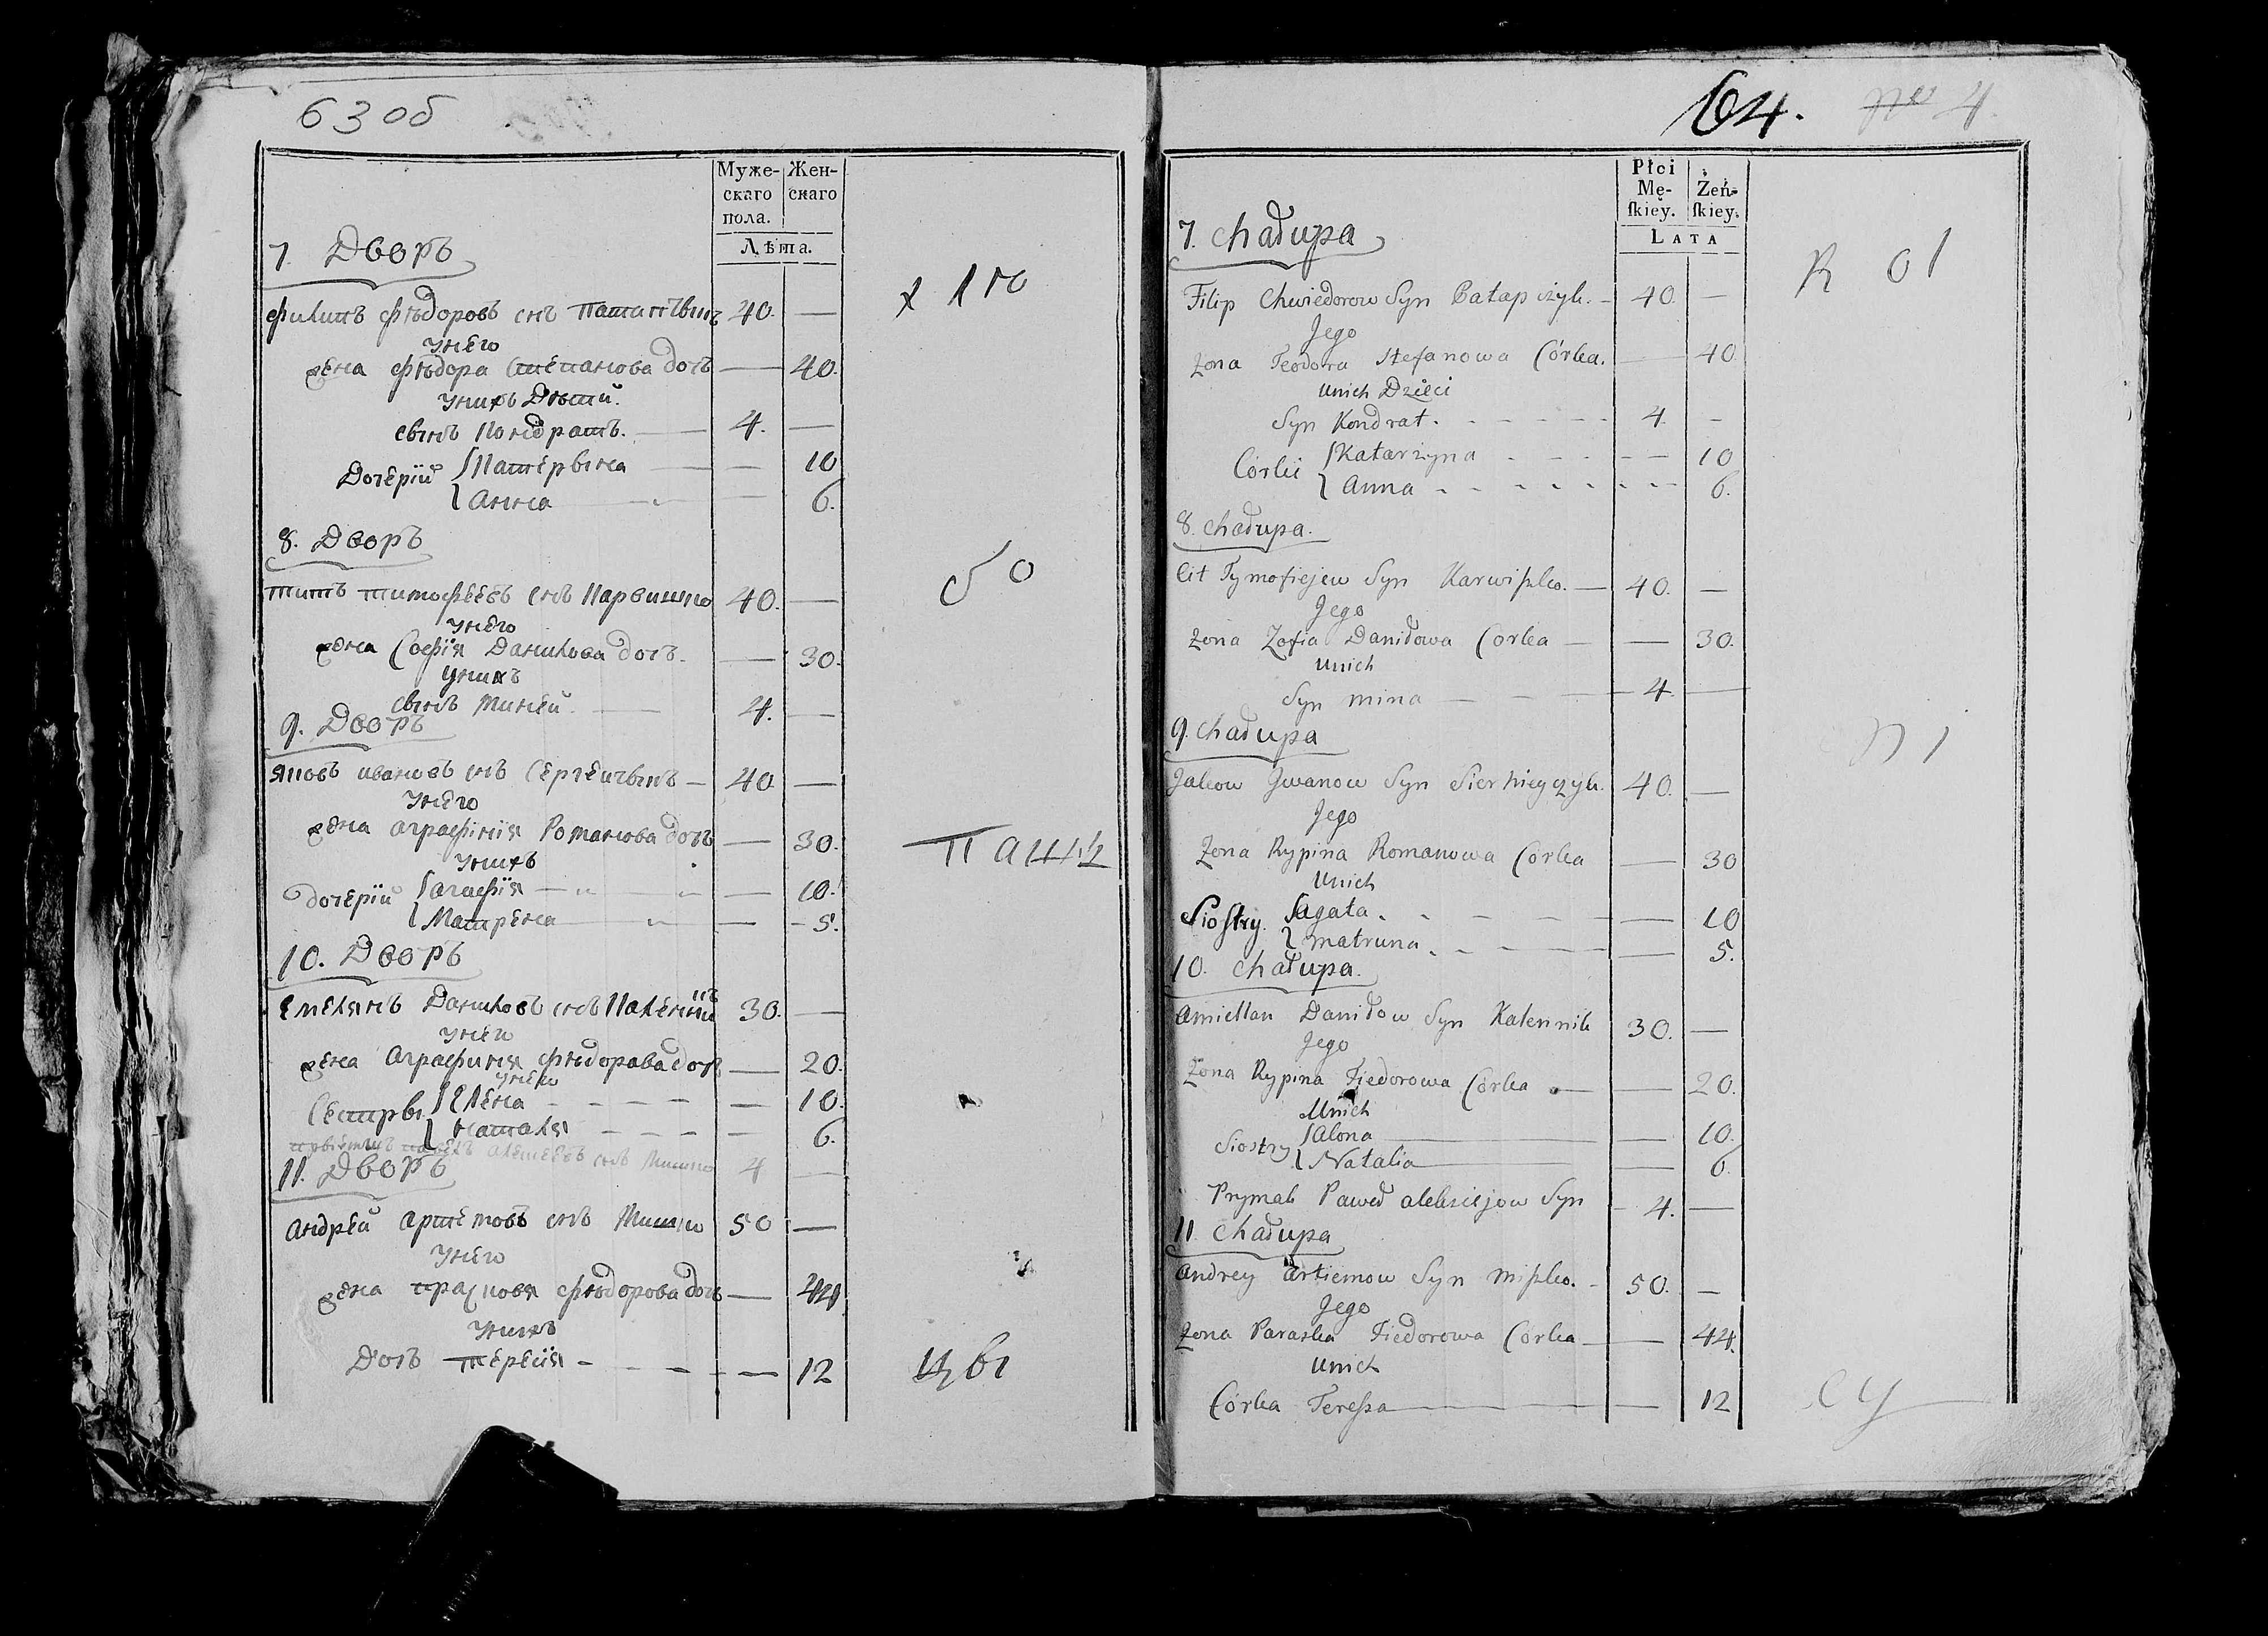 63 об
Муже- Жен-
скаго скаго
пола.
Лѣта.
7. Дворъ
Филипъ Фѣдоровъ снъ Патапчыкъ 40. —
Унего
жена Фѣдора Степанова дочь — 40.
Унихъ Дѣти.
сынъ Кондратъ. — 4. —
Дочерїи Катерына — — 10
Анна — — 6.
8. Дворъ
Титъ Тимофѣевъ снъ Карвишко 40. —
Унего
жена Софїя Данилова дочь. — 30.
Унихъ
сынъ Миней. — 4. —
9. Дворъ
Яковъ Ивановъ снъ Сергеичыкъ — 40 —
Унего
жена Аграфинїя Романова дочь — 30.
Унихъ
дочерїи Агафїя — — 10.
Матрена — — 5.
10. Дворъ
Емелянъ Даниловъ снъ Каленникъ 30. —
Унего
жена Аграфиня Фѣдорава дочь — 20.
Унего
Сестры Елена — — 10.
Наталя — — 6.
прыемышъ Павелъ Алексѣевъ снъ 4 —
11. Дворъ
Андрей Артемовъ снъ Мишко 50 —
Унего
жена Прасковя Фѣдорова дочь — 44
Унихъ
Дочь Тересїя — — 12
цы
64. No 4.
Płci
Mę- Żeń-
skiey. skiey.
LATA
7. Chałupa
Filip Chwiedorow Syn Patapczyk. — 40. —
Jego
Żona Teodora Stefanowa Córka. — 40
Unich Dzieci
Syn Kondrat. 4. —
Córki Katarzyna — 10
Anna — 6.
8. Chałupa.
Cit Tymofiejew Syn Karwiszko. — 40. —
Jego
Żona Zofia Daniłowa Corka — — 30.
Unich
Syn Mina — 4. —
9. Chałupa
Jakow Jwanow Syn Sierhieyczyk. 40. —
Jego
Żona Rypina Romanowa Córka — 30
Unich
Siostry. Agata. — 10
Matruna. — 5.
10. Chałupa.
Amiellan Daniłow Syn Kalennik 30. —
Jego
Żona Rypina Fiedorowa Córka — — 20.
Unich
Siostry Alona — 10.
Natalia — 6.
Prymak Paweł Alekiejow Syn — 4. —
11. Chałupa
Andrey Artiemow Syn Miszko. — 50. —
Jego
Żona Paraska Fiedorowa Córka — — 44.
Unich
Córka Teressa — — 12